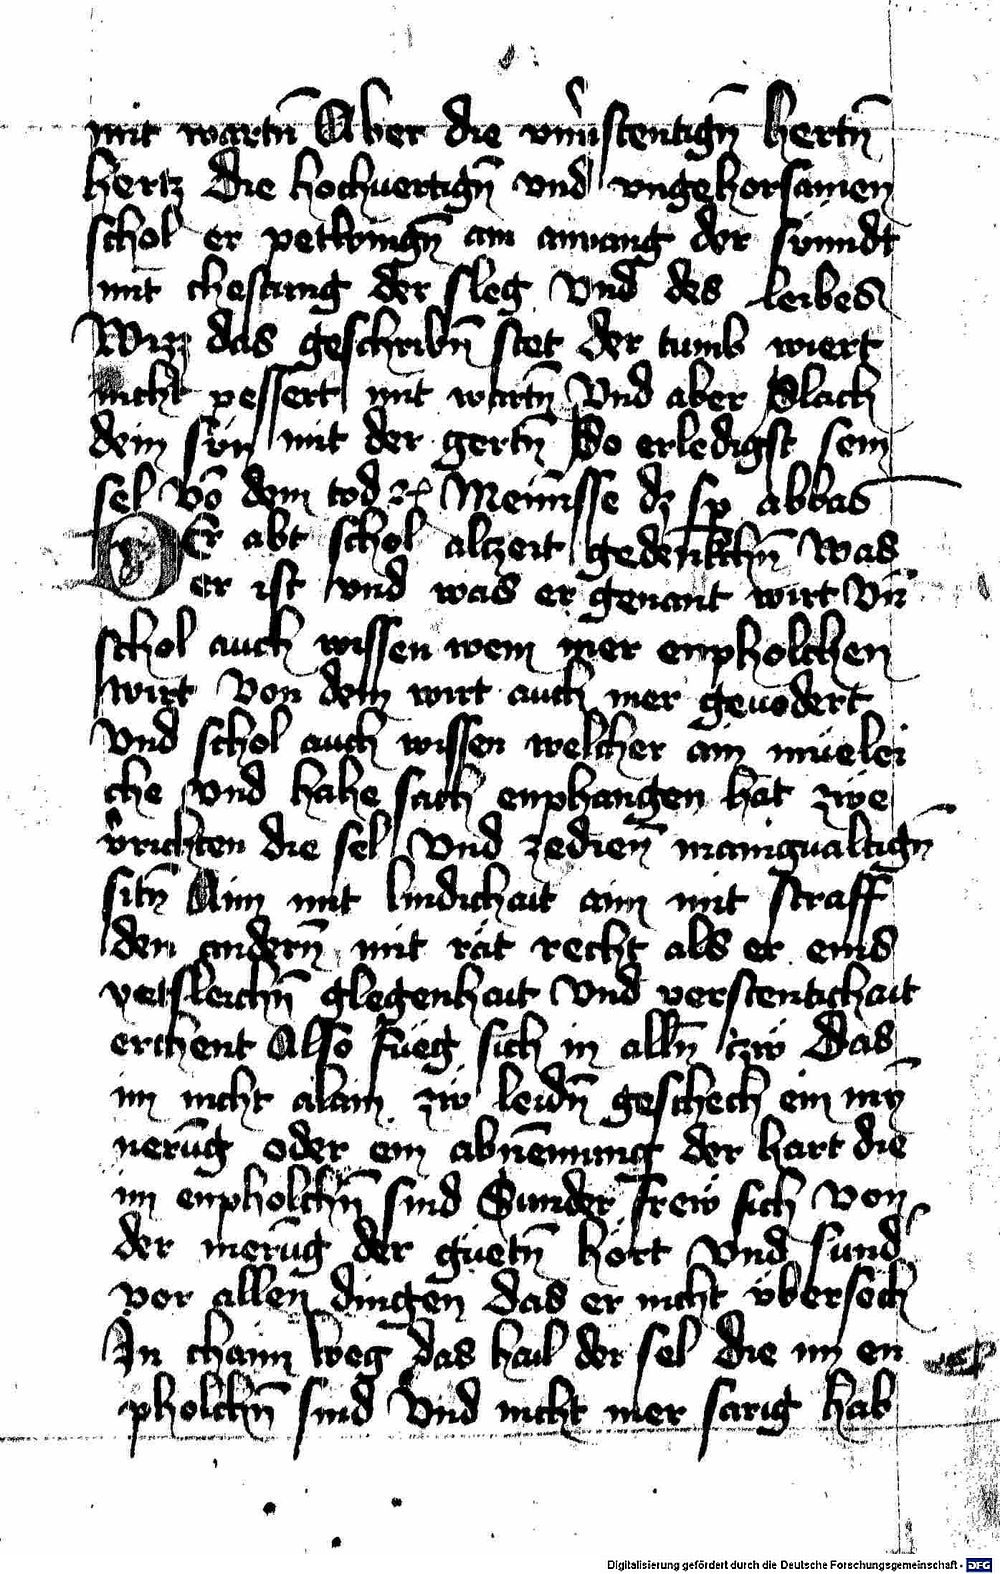 mit wartn̄ Aber die vnu̇stentign̄ hertn̄
hertz Die hochuertign̄ vnd vngehorsamen
schol er petbingn̄ am anuang der sünndt
mit chestung der sleg Vnd des leibes
Wizz das geschribn̄ stet der tumb wiert
nicht pessert mit wartn̄ Vnd aber Slach
dein sün mit der gertn̄ So erledigst sein
sel vō dem tod ꝛc Menn̄sse dz sp abbas
DEr abt schol alczeit gedenkchn̄ Was
er ist vnd was er genant wirt Vn̄
schol auch wissen wem mer enpholchen
wirt Von dem wirt auch mer geuodert
Vnd schol auch wissen welcher ain müelei
che vnd hahe sach enphangen hat zwe
v̇richten die sel Vnd zedien̄ manigualtign̄
sitn̄ Aim mit lindichait aim mit straff
den andern̄ mit rät recht als er eins
yetsleichn̄ glegenhait Vnd verstentichait
erchent Also füeg sich in alln̄ czw Das
im nicht alain zw leidn̄ geschech ein mÿ
nerūg oder ein abnēmung der hart die
im enpholchn̄ sind Sunder frew sich von
der merūg der guetn̄ hört Vnd sund
vor allen dingen Das er nicht übersech
In chaim weg das hail der sel Die im en
pholchn̄ sind Vnd nicht mer sarig hab
Digitalisierung gefördert durch die Deutsche Forschungsgemeinschaft - DFG